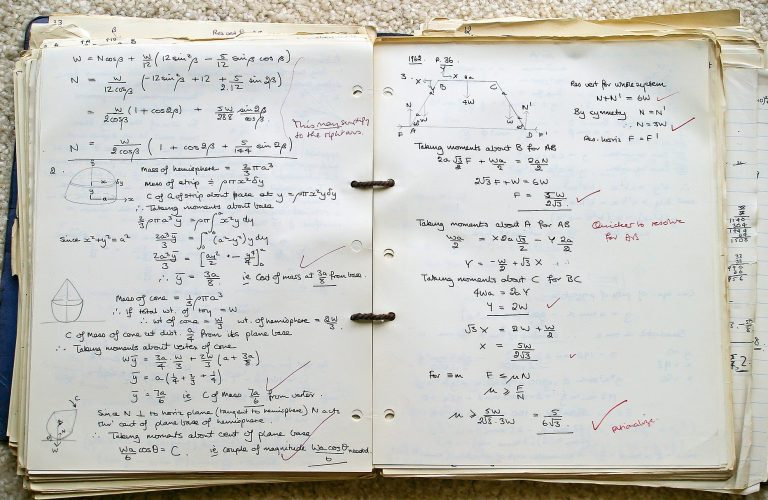 33
β
W = N cosβ + W/12 (12 sin²β − 5/12 sinβ cosβ)
N = W/12cosβ (−12 sin²β + 12 + 5/2.12 sin2β)
= W/2cosβ (1 + cos2β) + 5W/288 sin2β/cosβ
This may simplify
to the rqd ans.
N = W/2cosβ (1 + cos2β + 5/144 sin2β)
2.
Mass of hemisphere = 2/3 πρa³
Mass of strip = ρπx²δy
C of G of strip about base at y = ρπx²yδy
∴ Taking moments about base
2/3 ρπa³ȳ = ρπ∫x²y dy
Since x²+y²=a² 2a³ȳ/3 = ∫(a²−y²)y dy
2a³ȳ/3 = [ay²/2 − y⁴/4]
∴ ȳ = 3a/8 ie C of mass at 3a/8 from base.
Mass of cone = 1/3 ρπa³
∴ If total wt. of toy = W
∴ wt of cone = W/3 wt. of hemisphere = 2W/3
C of Mass of cone wt dist. a/4 from its plane base
∴ Taking moments about vertex of cone
Wȳ = 3a/4 . W/3 + 2W/3 (a + 3a/8)
ȳ = a(1/4 + 2/3 + 1/4)
ȳ = 7a/6 ie C of Mass 7a/6 from vertex.
Since N ⊥ to horiz plane (tangent to hemisphere) N acts
thro' cent of plane base of hemisphere.
∴ Taking moments about cent of plane base
Wa/6 cosθ = C. ie couple of magnitude Wa cosθ/6 needed.
1962 P. 36
3.
Res vert for whole system
N+N' = 6W
By symmetry N = N'
∴ N = 3W
Res. horiz F = F'
Taking moments about B for AB
2a√3/2 F + Wa/2 = 2aN/2
2√3F + W = 6W
F = 5W/2√3
Taking moments about A for AB
Quicker to resolve
for AB
Wa/2 = X2a√3/2 − Y2a/2
Y = −W/2 + √3X
Taking moments about C for BC
4Wa = 2aY
Y = 2W
√3X = 2W + W/2
X = 5W/2√3
For ≡m F ≤ μN
μ ≥ F/N
μ ≥ 5W/2√3.3W = 5/6√3
rationalize